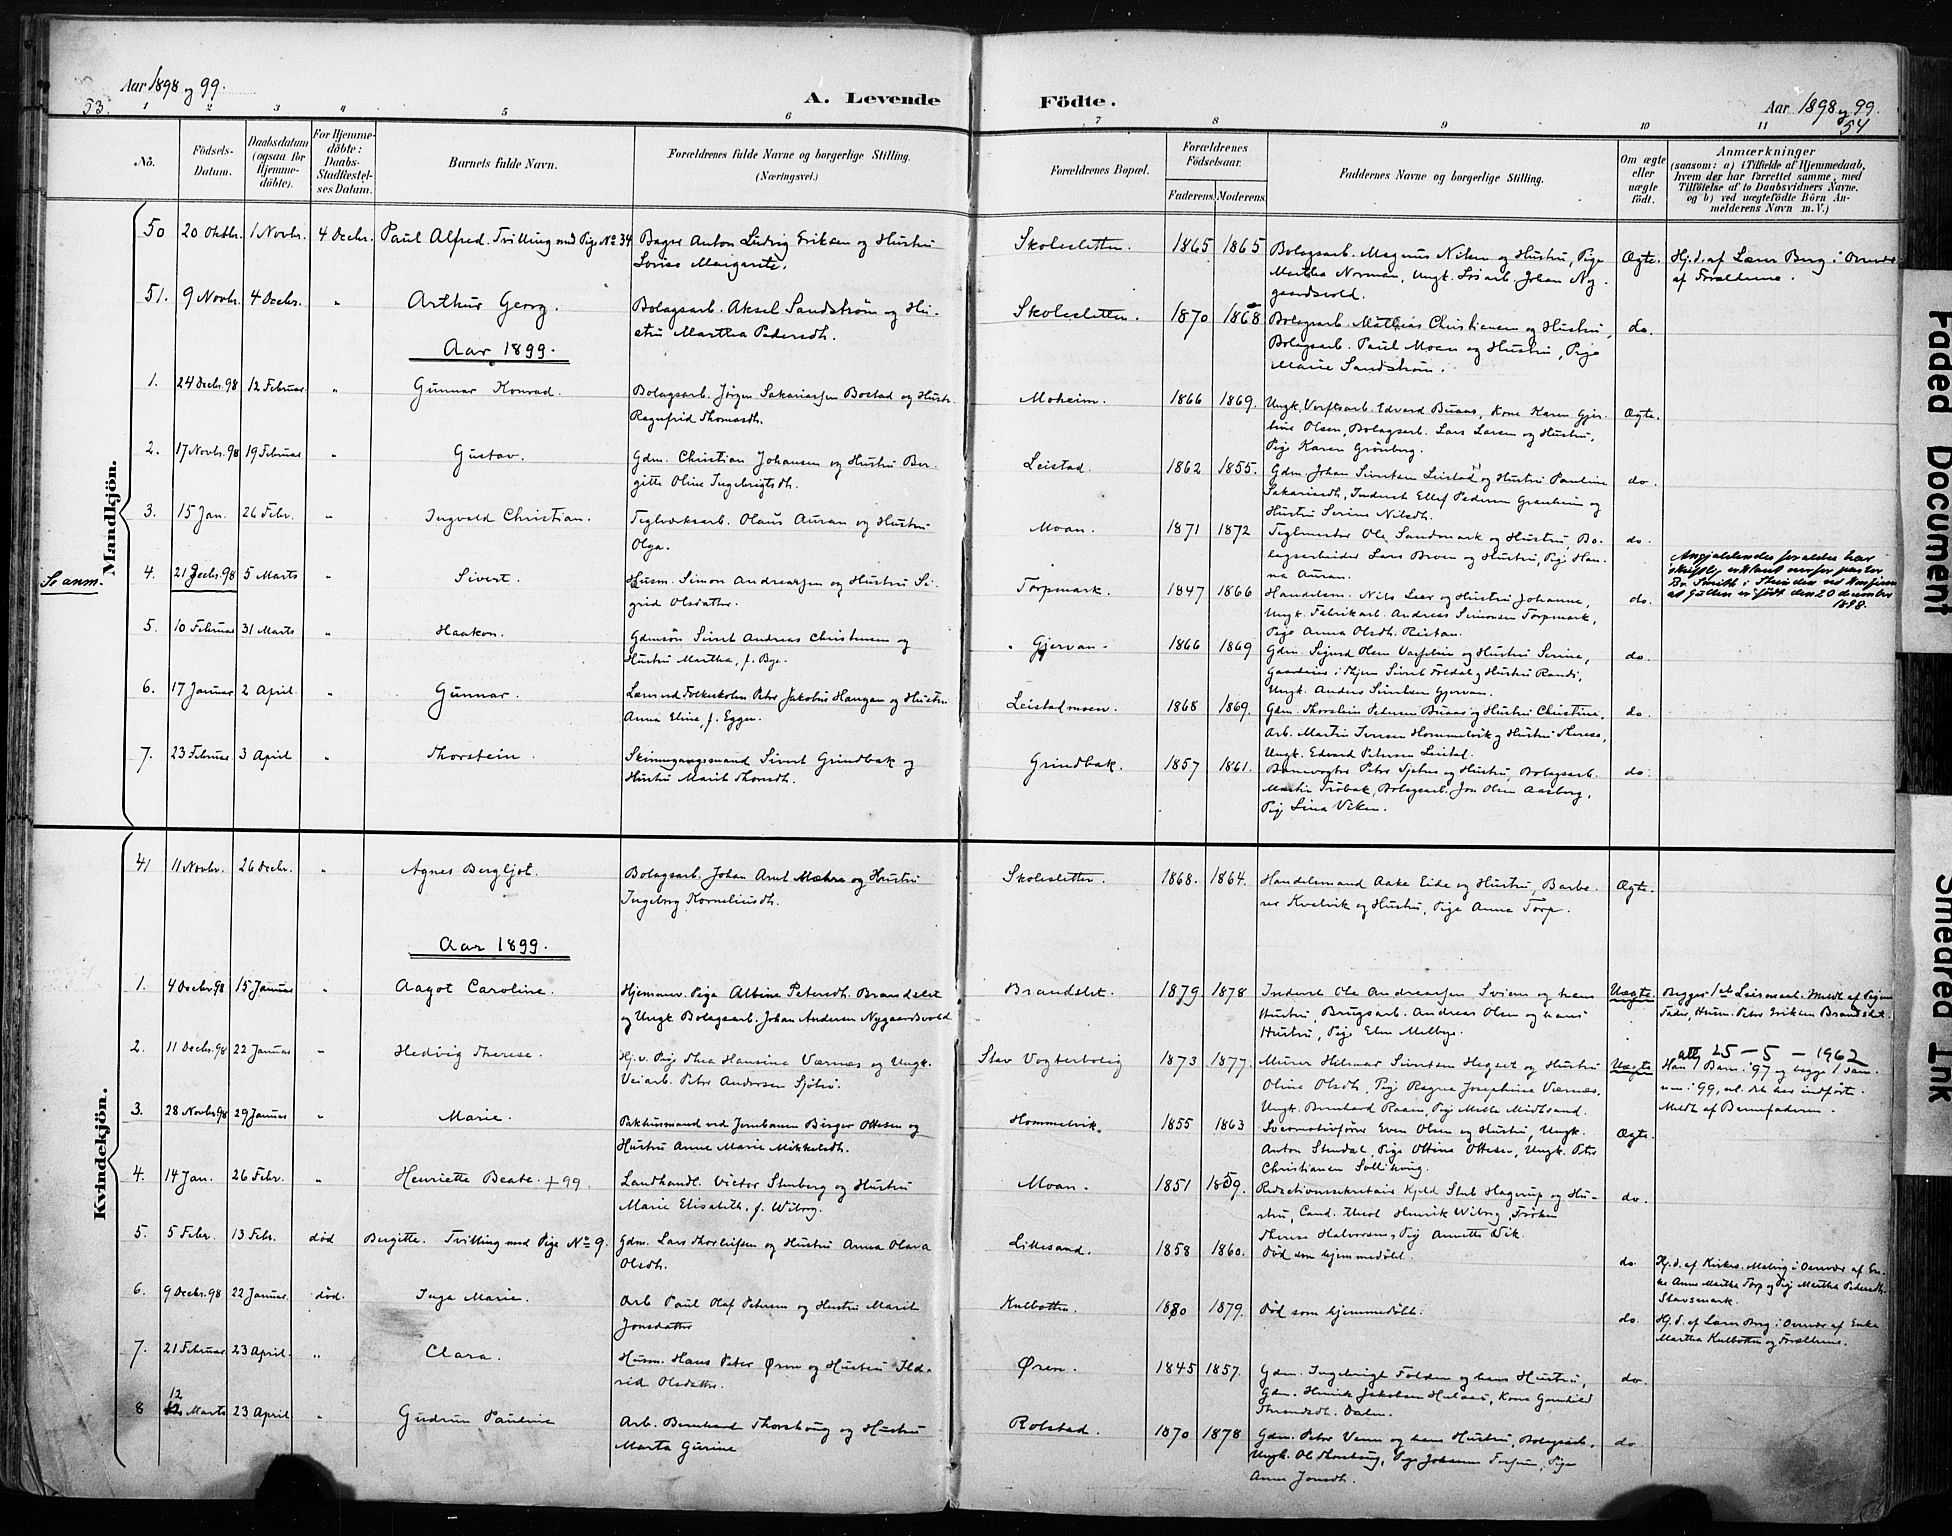 Aar 1898 og 99.
53.
A. Levende
Födte.
Aar 1898 og 99.
54
1 2 3 4 5 6 7 8 9 10 11
No.
Födsels-
Datum.
Daabsdatum
(ogsaa for
Hjemme-
döbte).
For Hjemme-
döbte:
Daabs-
Stadfæstel-
ses Datum.
Barnets fulde Navn.
Forældrenes fulde Navne og borgerlige Stilling.
(Næringsvei.)
Forældrenes Bopæl.
Forældrenes
Födselsaar.
Faderens. Moderens.
Faddernes Navne og borgerlige Stilling.
Om ægte
eller
uægte
födt.
Anmærkninger
(saasom: a) i Tilfælde af Hjemmedaab,
hvem der har forrettet samme, med
Tilföielse af to Daabsvidners Navne.
og b) ved uægtefödte Börn An-
melderens Navn m. V.)
Mandkjön.
50 20 Oktbr. 1 Novbr. 4 Decbr. Paul Alfred. Tvilling med Pige No 34 Bager Anton Ludvig Eriksen og Hustru
Lovise Margarete.
Skolesletten. 1865 1865 Bolagsarb. Magnus Nilsen og Hustru, Pige
Martha Norman, Ungk. Løsarb. Johan Ny-
gaardsvold.
Ægte. Hj.d. af Lærer Berg i Overvær
af Forældrene.
51. 9 Novbr. 4 Decbr. " Arthur Georg. Bolagsarb. Aksel Sandstrøm og Hu-
stru Martha Pedersdh.
Skolesletten. 1870 1868 Bolagsarb. Mathias Christiansen og Hustru,
Bolagsarb. Paul Moen og Hustru, Pige
Marie Sandstrøm.
do.
Aar 1899.
1. 24 Decbr. 98 12 Februar " Gunnar Konrad. Bolagsarb. Jörgen Sakariassen Bostad og Hustr.
Ragnfrid Thomasdh.
Moheim. 1866 1869. Ungk. Værftsarb. Edvard Buaas, Kone Karen Gjer-
tine Olsen, Bolagsarb. Lars Larsen og Hustru,
Pige Karen Grönberg.
Ægte.
2. 17 Novbr. 98 19 Februar " Gustav. Gdm. Christian Johansen og Hustru Ber-
gitte Oline Ingebrigtsdh.
Leistad. 1862 1855. Gdm. Johan Sivertsen Leistad og Hustru Pauline
Sakariasdh., Inderst Ellef Pedersen Granheim og
Hustru Serine Nilsdh.
do.
3. 15 Jan. 26 Febr. " Ingvald Christian. Teglværksarb. Olaus Auran og Hustru
Olga.
Moan. 1871 1872 Teglmester Ole Sandmark og Hustru, Bo-
lagsarbeider Lars Broen og Hustru, Pige Han-
na Auran.
do.
Se anm.
4. 21 Decbr. 98 5 Marts " Sivert. Husm. Simon Andreassen og Hustru Si-
grid Olsdatter.
Torpmark. 1847 1866 Handelsm. Nils Leer og Hustru Johanne,
Ungk. Fabrikarb. Andreas Simonsen Torpmark,
Pige Anna Olsdh. Reistan.
do.
Angjældendes foreldre har
skriftlig erklært overfor pastor
Br. Smith i Steinden ved Konfirm.
at gutten er født den 20 december
1898.
5. 10 Februar 31 Marts " Haakon. Gdmsön Sivert Andreas Christensen og
Hustru Martha, f. Bye.
Gjervan. 1866 1869 Gdm. Sigurd Olsen Vasfelin og Hustru Serine,
Gaardeier i Thjem Sivert Foldal og Hustru Randi,
Ungk. Anders Sivertsen Gjervan.
do.
6. 17 Januar 2 April. " Gunnar. Lærer ved Folkeskolen Peter Jakobus Haugan og Hustru
Anna Eline, f. Eggen.
Leistadmoen. 1868 1869. Gdm. Thorstein Petersen Buaas og Hustru Christine,
Arb. Martin Iversen Hommelvik og Hustru Therese,
Ungk. Edvard Petersen Leistad.
do.
7. 23 Februar 3 April " Thorstein. Skinnegangsmand Sivert Grindbak og
Hustru Marit Thorsdh.
Grindbak. 1857 1861. Banevogter Peter Sjetne og Hustru, Bolagsarb.
Martin Trobak, Bolagsarb. Jon Olsen Aasberg,
Pige Lina Viken.
do.
Kvindekjön.
41 11 Novbr. 26 Decbr. " Agnes Bergljot. Bolagsarb. Johan Arnt Mæhre og Hustru
Ingeborg Korneliusdh.
Skolesletten. 1868. 1864. Handelsmand Aake Eide og Hustru, Barbe-
rer Kvelvik og Hustru, Pige Anna Torp.
Ægte.
Aar 1899.
1. 4 Decbr 98 15 Januar " Aagot Caroline. Hjemmev. Pige Albine Petersdh. Brandslet
og Ungk Bolagsarb. Johan Andersen Nygaardsvold
Brandslet. 1879 1878 Inderst Ole Andreassen Sveen og hans
Hustru, Brugsarb. Andreas Olsen og hans
Hustru, Pige Elen Melbye.
Uægte. Begges 1ste Leiermaal. Meldt af Pigens
Fader, Husm. Peter Eriksen Brandslet.
2. 11 Decbr. 98 22 Januar " Hedvig Therese. Hj.v. Pige Thea Hansine Værnes og Ungk.
Veiarb. Peter Andersen Sjöbro.
Stav Vogterbolig 1873 1877. Murer Helmer Sivertsen Hegset og Hustru
Oline Olsdh., Pige Ragna Josephine Værnes,
Ungk. Bernhard Raaen, Pige Mette Midtsand.
Uægte
att 25-5-1962
Han 1 Barn i '97 og begge 1 sam-
men i 99, vel. ikke indført.
Meldt af Barnefaderen.
3. 28 Novbr 98 29 Januar " Marie. Pakhusmand ved Jernbanen Birger Ottesen og
Hustru Anne Marie Mikkelsdh.
Hommelvik. 1855 1863 Locomotivfører Even Olsen og Hustru, Ungk.
Anton Stendal, Pige Ottina Ottesen, Ungk. Peter
Christiansen Sollihaug.
Ægte.
4. 14 Jan. 26 Febr. " Henriette Beate. + 99. Landhandl. Victor Stenberg og Hustru
Marie Elisabeth, f. Wiborg.
Moan. 1851 1859. Redactionssekretair Kjeld Stub Hagerup og Hu-
stru, Cand. theol Henrik Wiborg, Frøken
Therese Halvorsen, Pige Annette Wik.
do.
5. 5 Febr. 13 Febr. död Bergitte. Tvilling med Pige No 9. Gdm. Lars Thorleifsen og Hustru Anna Olava
Olsdh.
Lillesand. 1858 1860. Död som hjemmedöbt.
do. Hj.d. af Kirkes. Malvig i Overvær af En-
ke Anne Martha Torp og Pige Martha Pedersdh.
Stavsmark.
6. 9 Decbr. 98 22 Januar. död. Inga Marie. Arb Paul Olaf Petersen og Hustru Marit
Jonsdatter
Kulbotten. 1880 1879. Död som hjemmedöbt.
do. Hj.d. af Lærer Berg i Overvær af Enke
Martha Kulbotten og Forældrene.
7. 21 Februar 23 April. " Clara. Husm. Hans Peter Øren og Hustru Ild-
rid Olsdatter.
Øren. 1845 1857. Gdm. Ingebrigt Folden og hans Hustru,
Gdm. Henrik Jakobsen Hulaas, Kone Gunhild
Throndsdh. Dalen.
do.
8 12 Marts 23 April " Gudrun Pauline Arb. Bernhard Thorshaug og Hustru
Marta Gurine
Rolstad. 1870 1878 Gdm. Peter Venn og hans Hustru, Bolagsarb.
Ungk. Ole Thorshaug, Pige Johanna Forsum, Pige
Anne Jonsdh.
do.
Faded Document
Smeared Ink